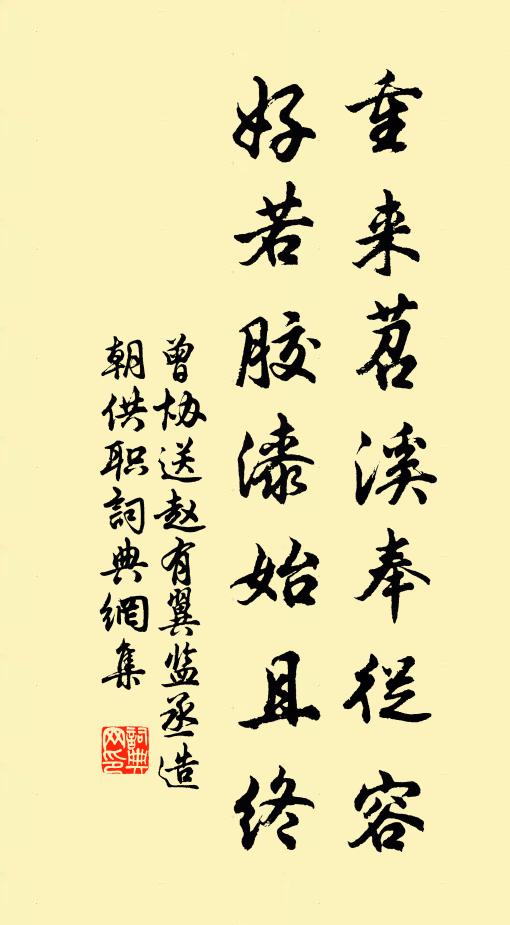 重来苕溪奉從容
好若胶漆始且终
曾协送赵有翼监丞造
朝供职詞典網集
詞典
网印